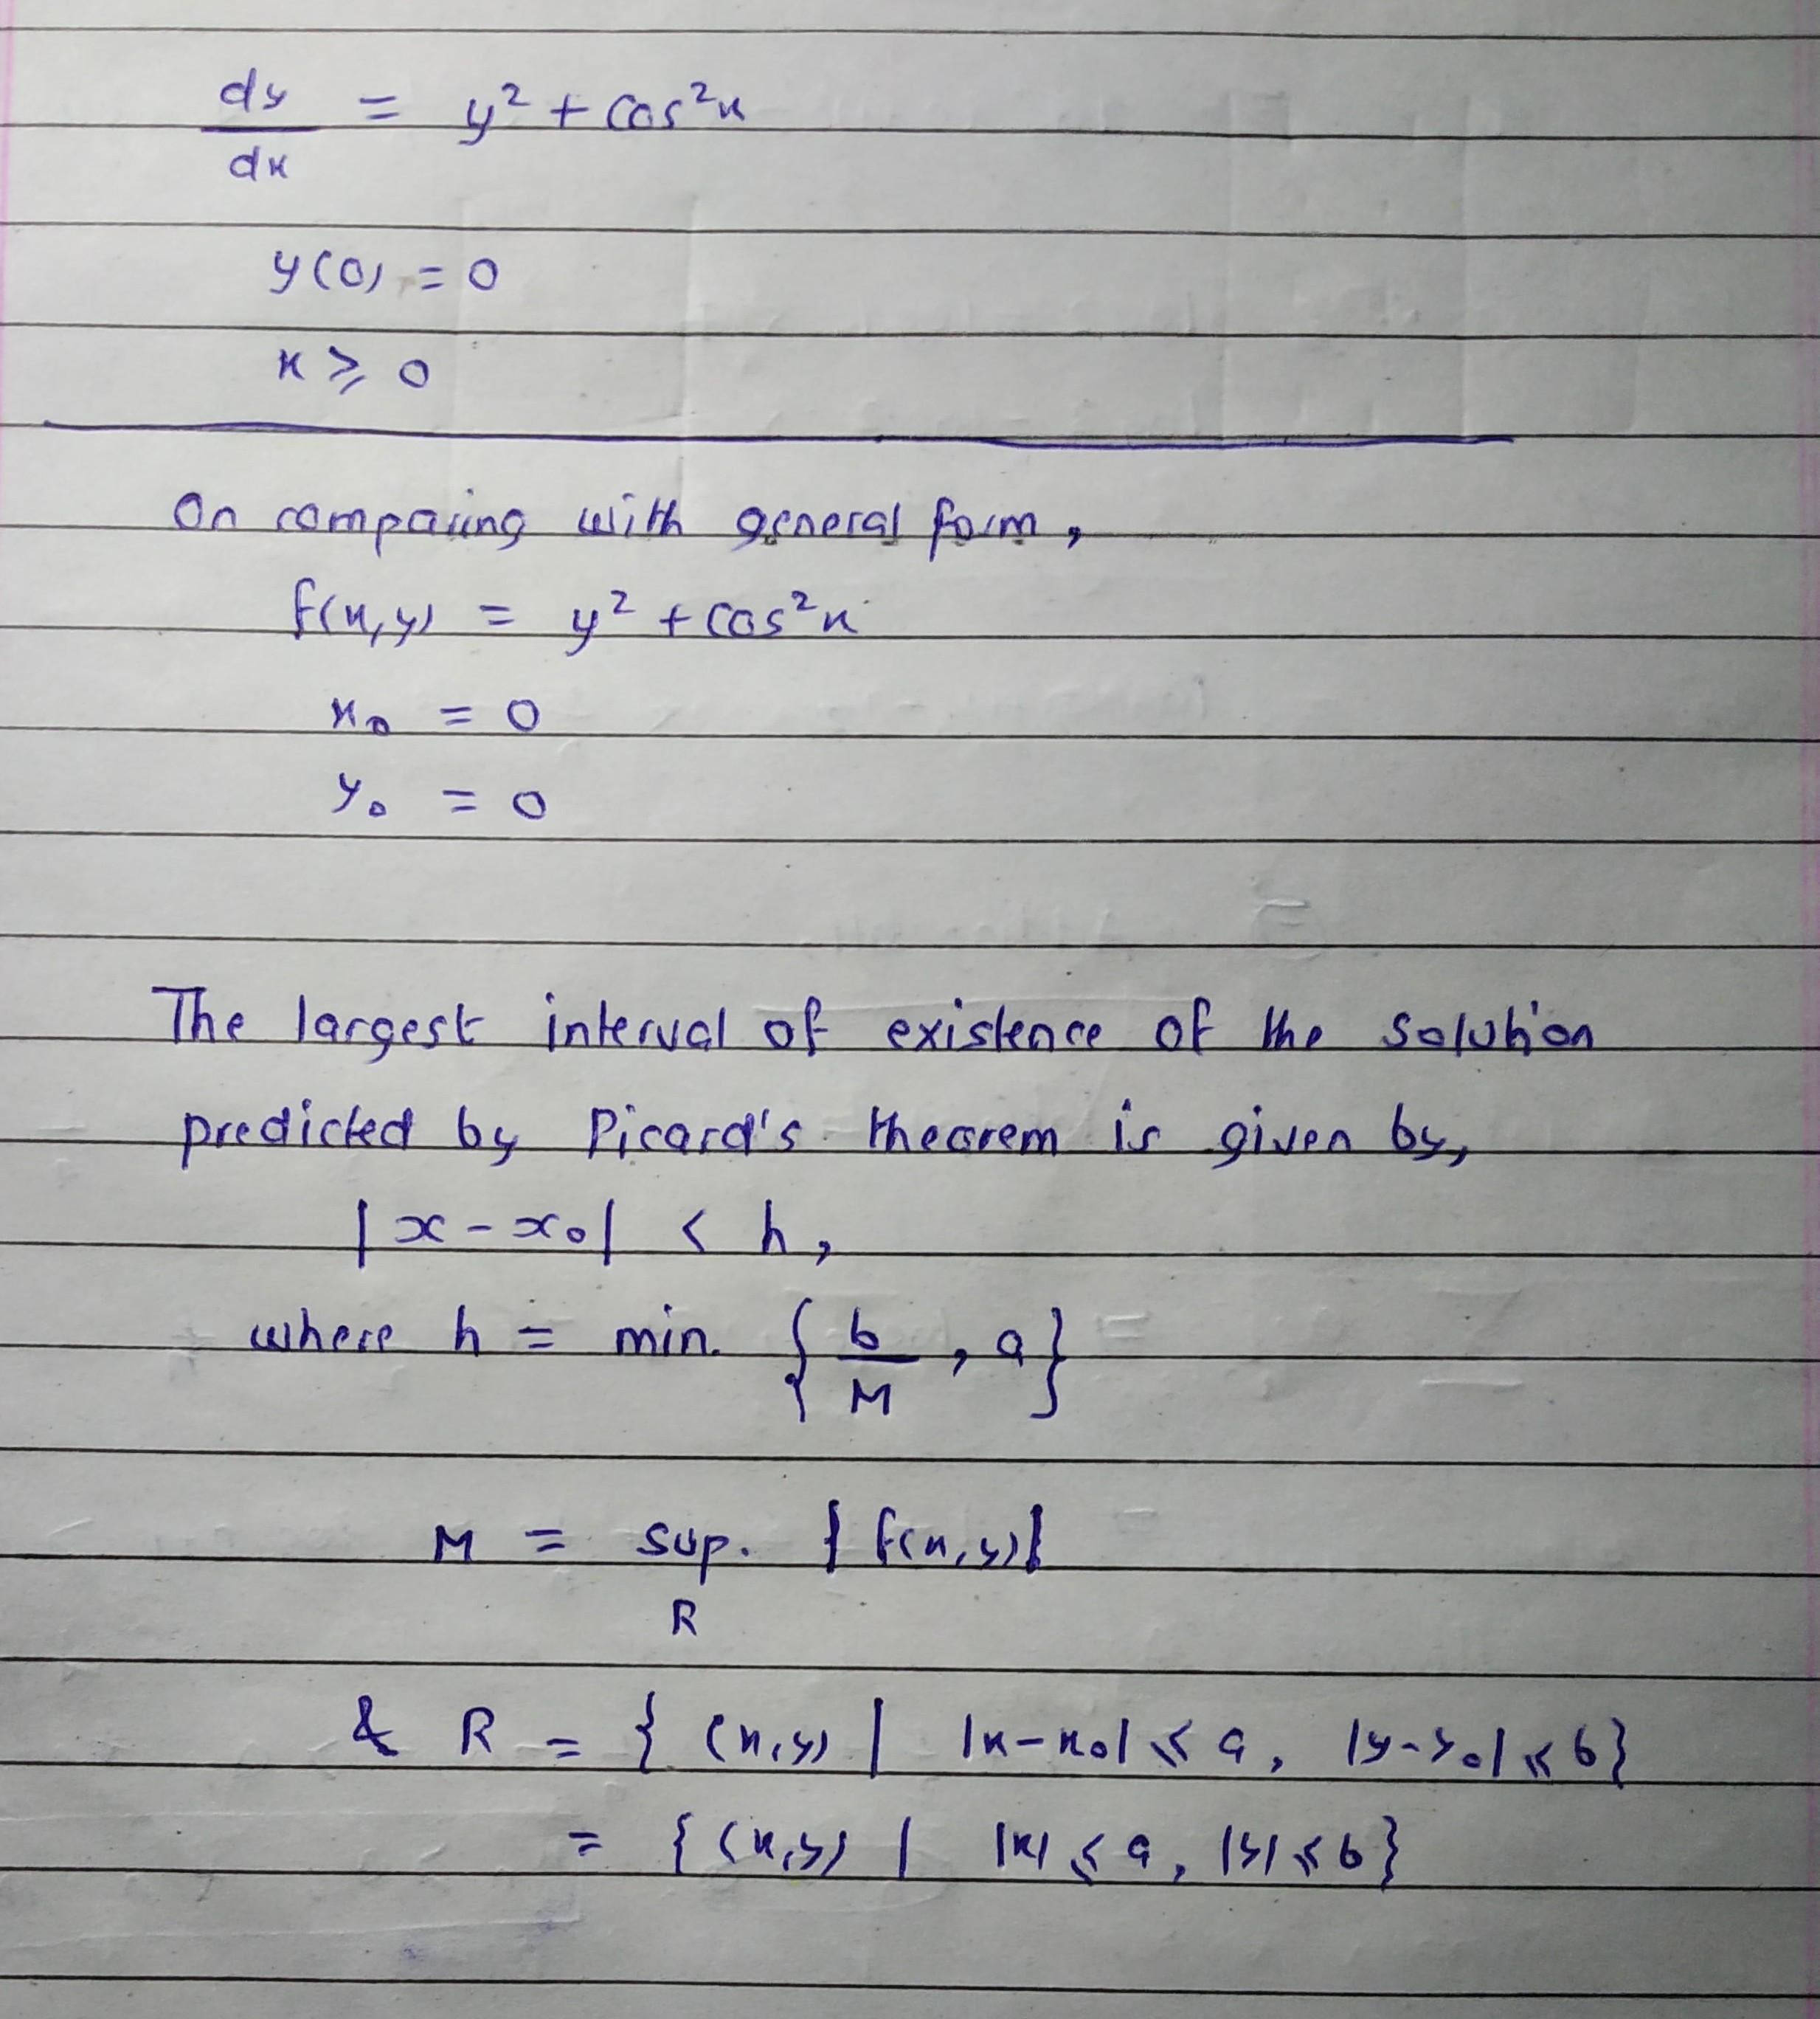 dy/dx = y² + cos²x
y(0) = 0
x ⩾ 0
On comparing with general form,
f(x,y) = y² + cos²x
x₀ = 0
y₀ = 0
The largest interval of existence of the solution
predicted by Picard's theorem is given by,
|x - x₀| < h,
where h = min. {b/M, a}
M = sup. |f(x,y)|
R
& R = {(x,y) | |x-x₀| ⩽ a, |y-y₀| ⩽ b}
= {(x,y) | |x| ⩽ a, |y| ⩽ b}